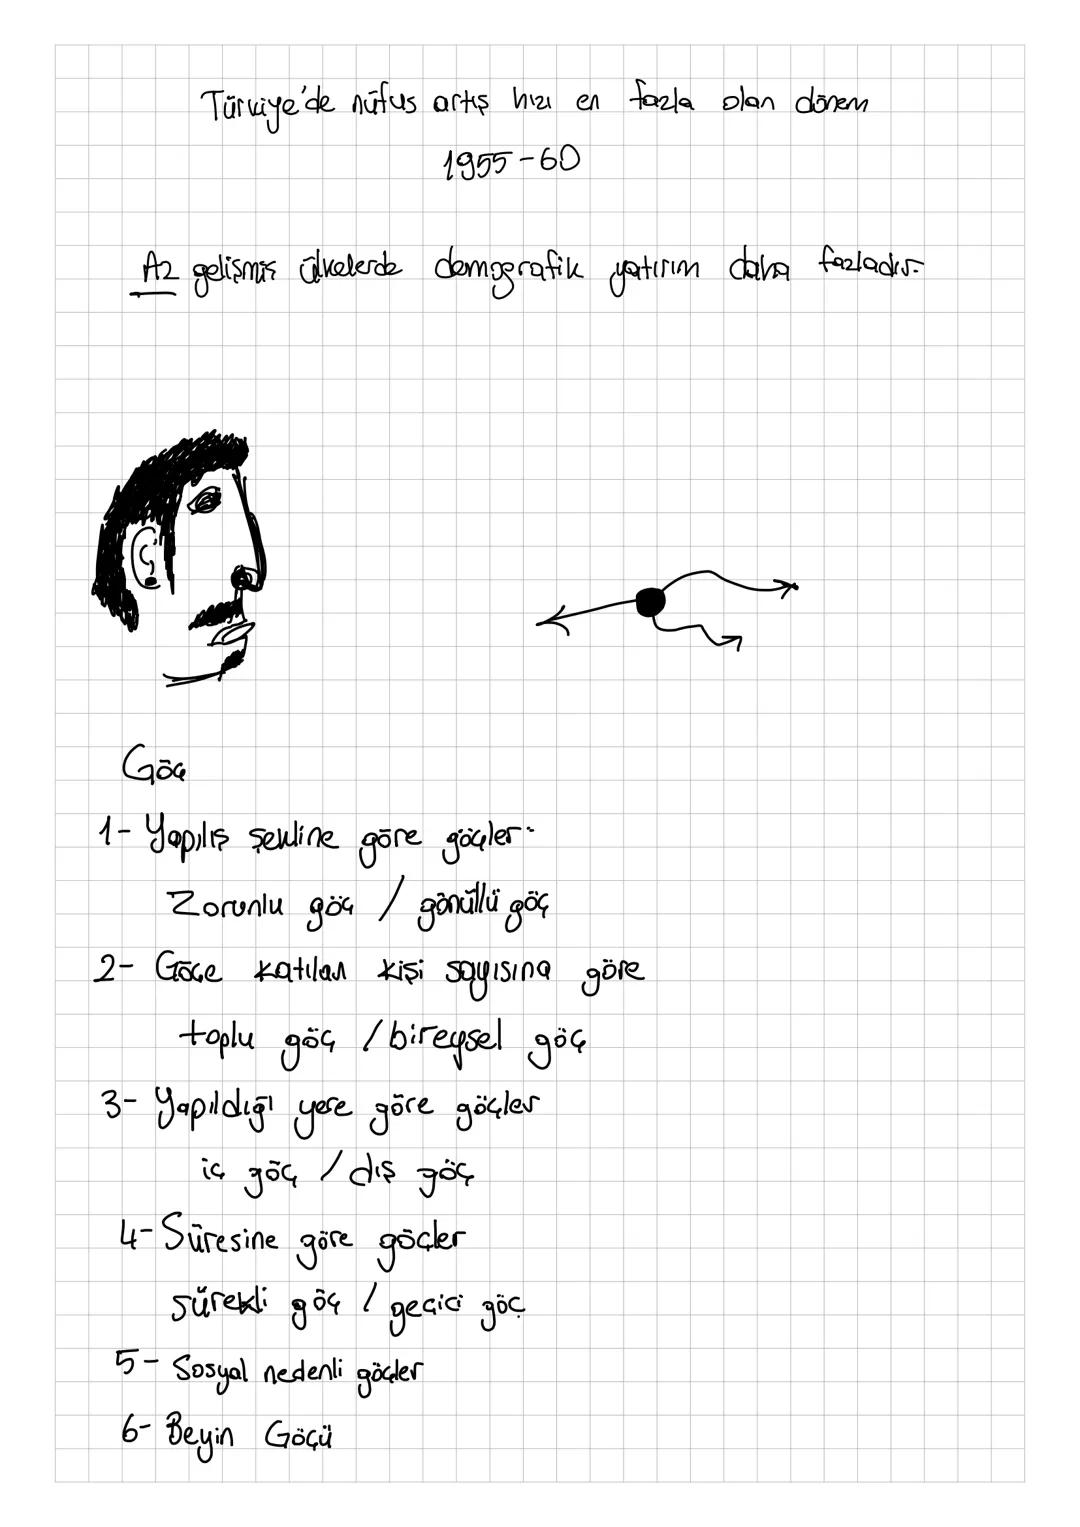 Türkiye'de nüfus artış hızı en fazla olan dönem
1955-60
Az gelişmiş ülkelerde demografik yatırım daha fazladır.
Göç
1- Yapılış şekline göre göçler:
Zorunlu göç / gönüllü göç
2- Göçe katılan kişi sayısına göre
toplu göç / bireysel göç
3- Yapıldığı yere göre göçler
iç göç / dış göç
4- Süresine göre göçler
sürekli göç / geçici göç
5- Sosyal nedenli göçler
6- Beyin Göçü